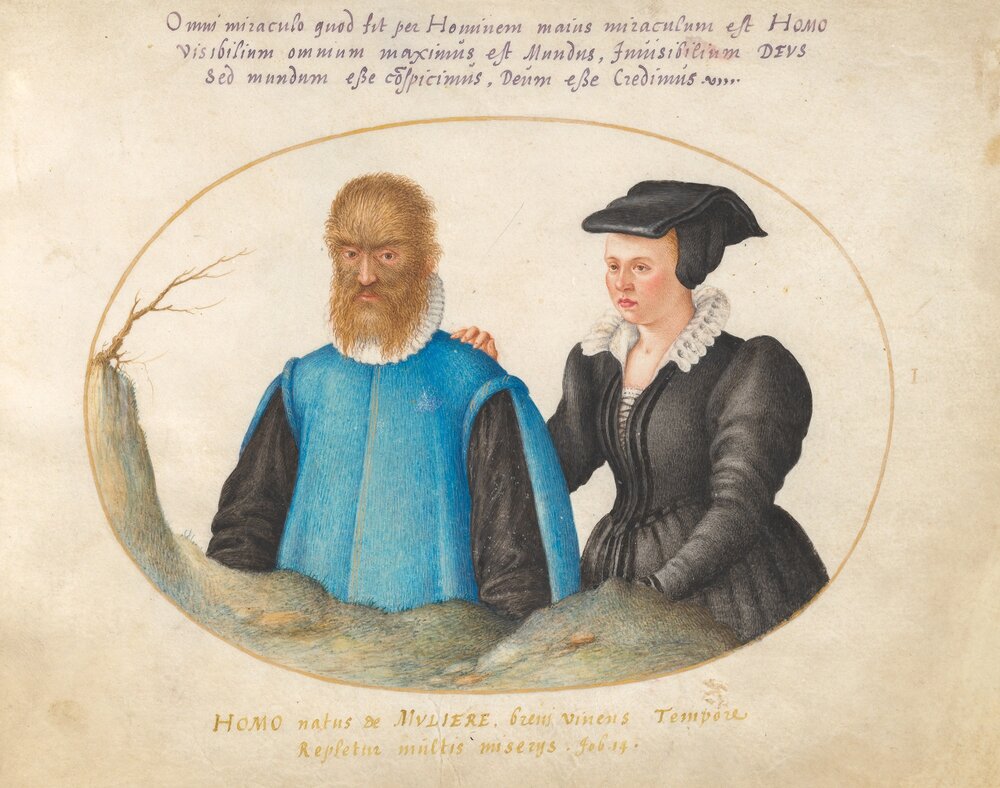 Omni miraculo quod fit per Hominem maius miraculum est HOMO
Visibilium omnium maximus est Mundus, Invisibilium DEVS
Sed mundum eße cōspicimus, Deum eße Credimus
I
HOMO natus de MVLIERE. breui viuens Tempore
Repletur multis miserys. Job 14.